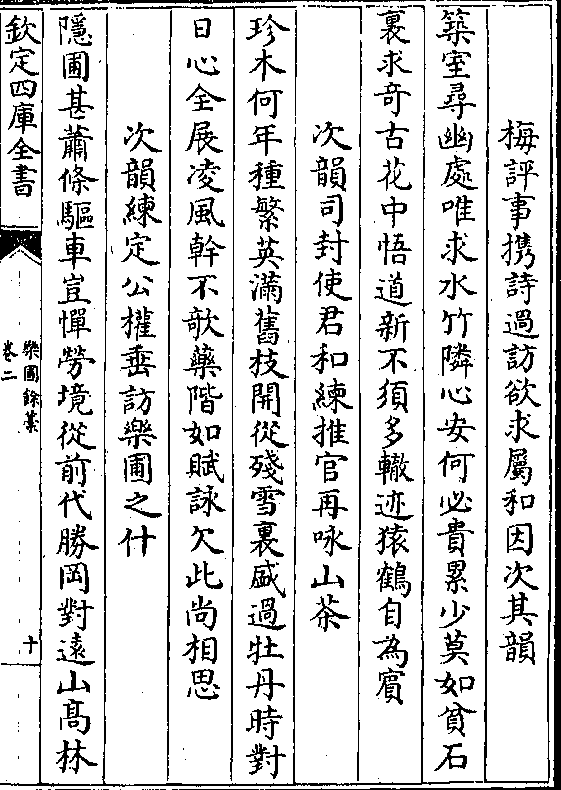 梅評事攜詩過訪欲求屬和因次其韻
築室尋幽處唯求水竹隣心安何必貴累少莫如貧石
裏求奇古花中悟道新不須多轍迹猿鶴自為賓
次韻司封使君和練推官再咏山茶
珍木何年種繁英滿舊枝開從殘雪裏盛過牡丹時對
日心全展凌風幹不欹藥階如賦詠欠此尚相思
次韻練定公權垂訪樂圃之什
隱圃甚蕭條驅車豈憚勞境從前代勝岡對遠山髙林
欽定四庫全書
樂圃餘藁
卷二
十